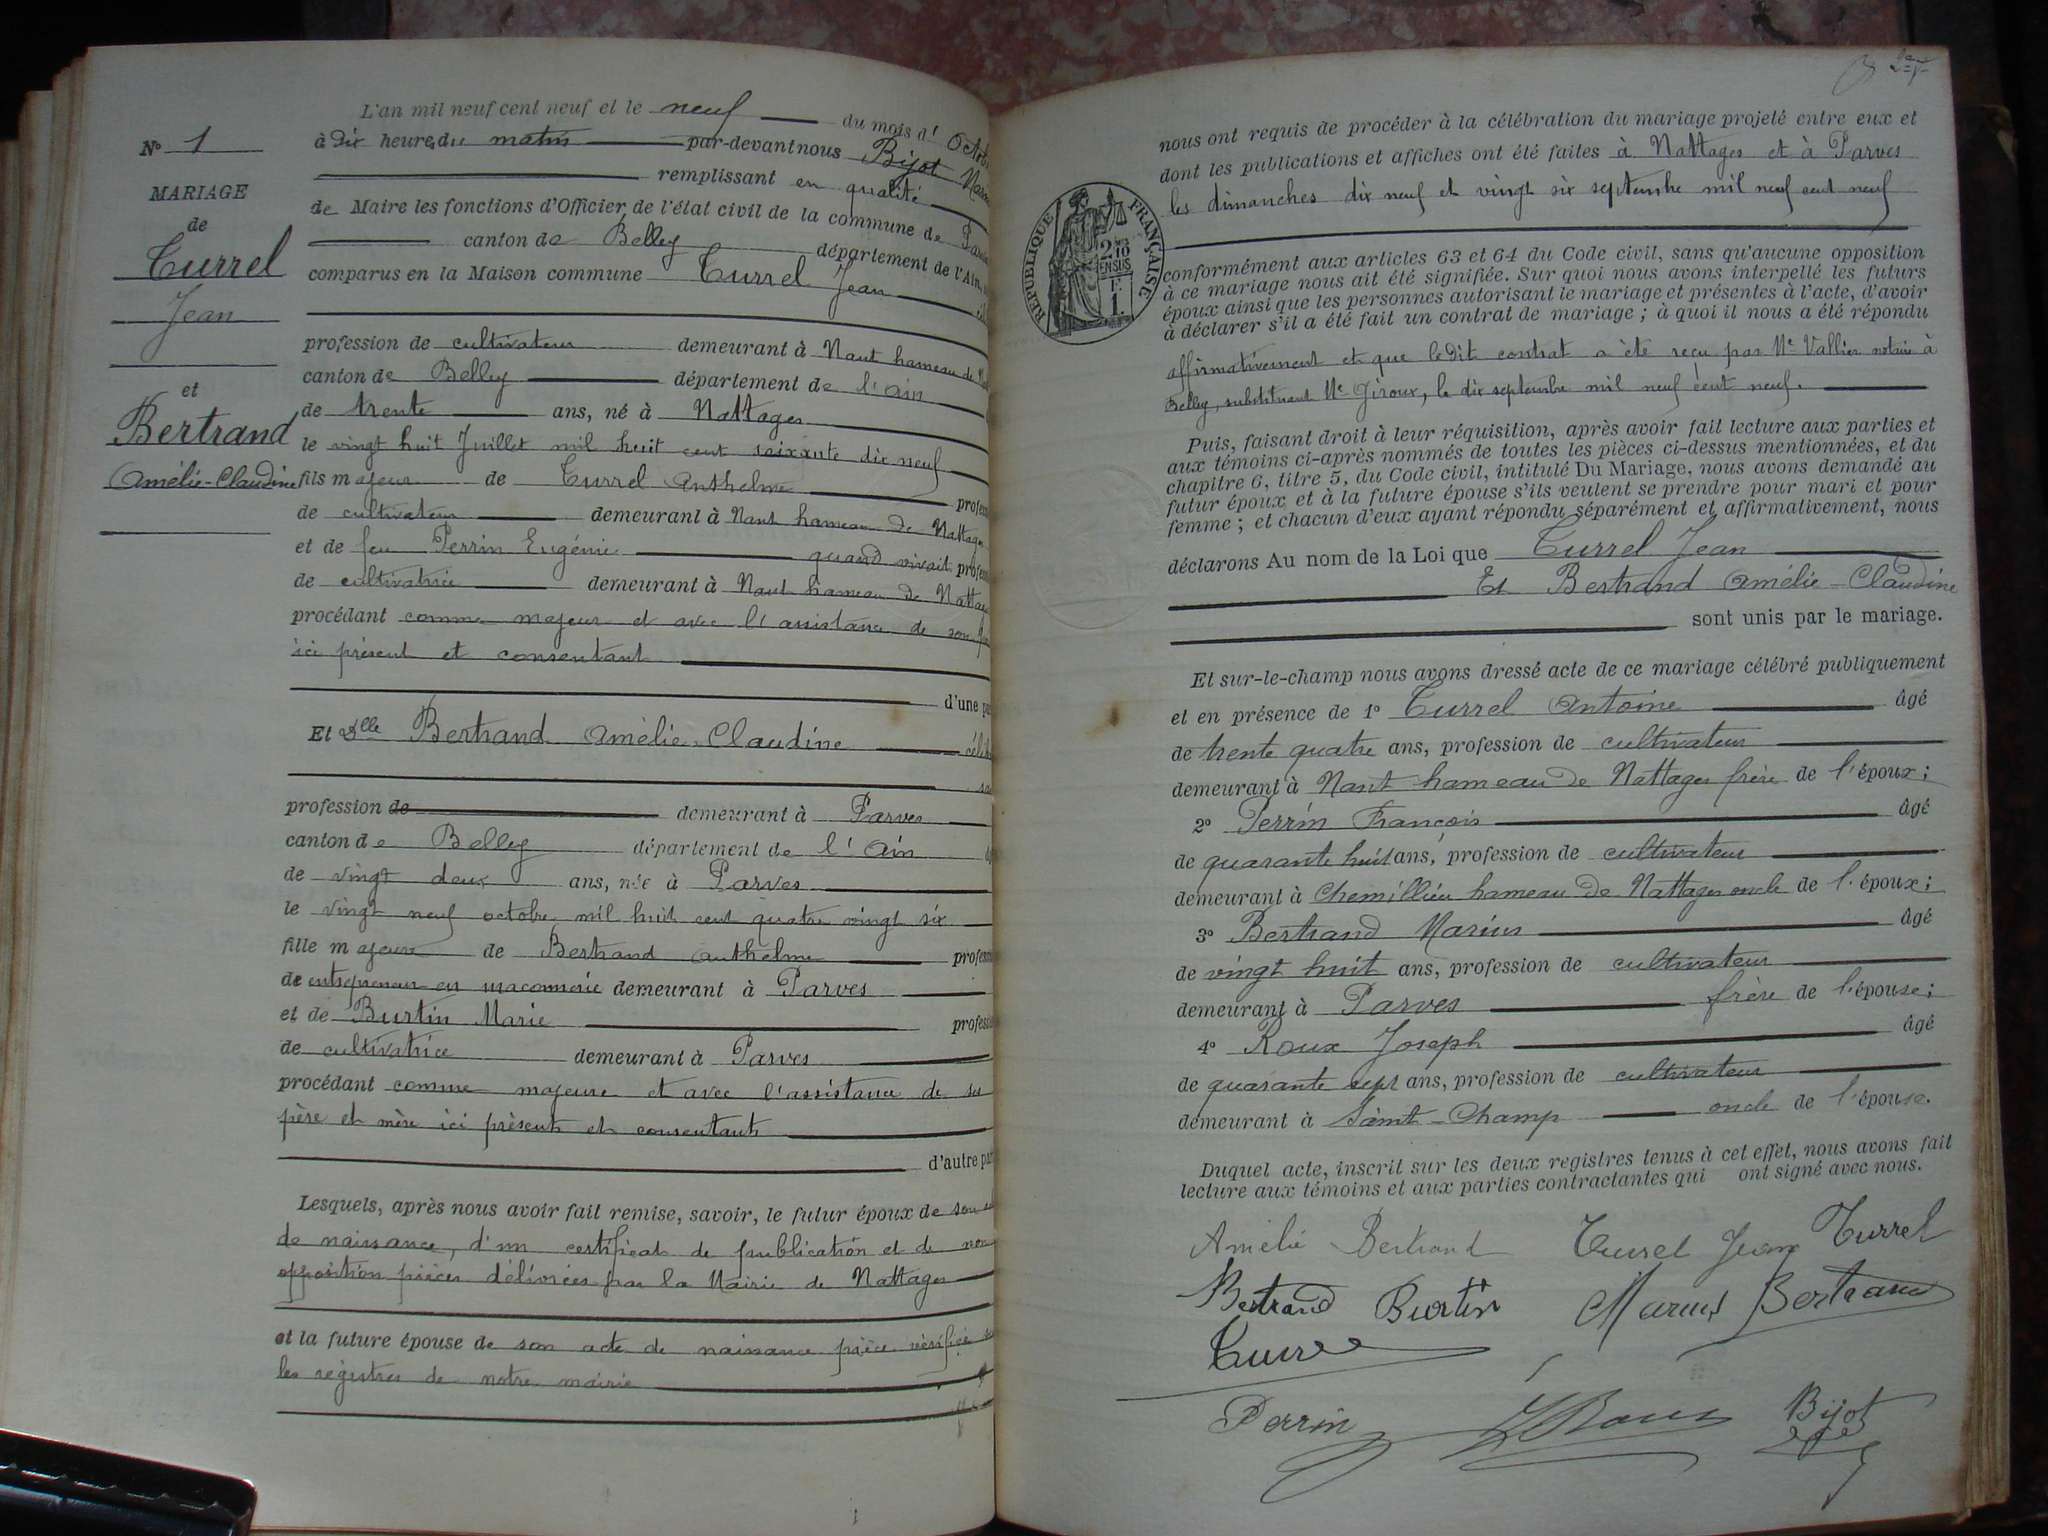 L'an mil neuf cent neuf et le neuf du mois d'
N° 1
à dix heures du matin par-devant nous Bijot
MARIAGE
remplissant en qualité
de
de Maire les fonctions d'Officier de l'état civil de la commune de
Turrel
canton de Belley département de l'Ain,
comparus en la Maison commune Turrel Jean
Jean
profession de cultivateur demeurant à Nant hameau de
canton de Belley département de l'Ain
et
de trente ans, né à Nattages
Bertrand
le vingt huit Juillet mil huit cent soixante dix neuf
Amélie-Claudine
fils majeur de Turrel Anthelme
de cultivateur demeurant à Nant hameau de Nattages
et de feu Perrin Eugénie quand vivait
de cultivatrice demeurant à Nant hameau de
procédant comme majeur et avec l'assistance de son
ici présent et consentant
d'une
Et Dlle Bertrand Amélie-Claudine
profession de demeurant à Parves
canton de Belley département de l'Ain
de vingt deux ans, née à Parves
le vingt neuf octobre mil huit cent quatre vingt six
fille majeure de Bertrand Anthelme
de entrepreneur en maconnerie demeurant à Parves
et de Burtin Marie
de cultivatrice demeurant à Parves
procédant comme majeure et avec l'assistance de ses
père et mère ici présents et consentants
d'autre
Lesquels, après nous avoir fait remise, savoir, le futur époux de son
de naissance, d'un certificat de publication et de non
opposition pièces délivrées par la Mairie de Nattages
et la future épouse de son acte de naissance pièce vérifiée
les régistres de notre mairie
nous ont requis de procéder à la célébration du mariage projeté entre eux et
dont les publications et affiches ont été faites à Nattages et à Parves
les dimanches dix neuf et vingt six septembre mil neuf cent neuf
RÉPUBLIQUE FRANÇAISE
2/10 EN SUS
F. 1.
conformément aux articles 63 et 64 du Code civil, sans qu'aucune opposition
à ce mariage nous ait été signifiée. Sur quoi nous avons interpellé les futurs
époux ainsi que les personnes autorisant le mariage et présentes à l'acte, d'avoir
à déclarer s'il a été fait un contrat de mariage ; à quoi il nous a été répondu
affirmativement et que ledit contrat a été reçu par Me Vallier notaire à
Belley, substituant Me Giroux, le dix septembre mil neuf cent neuf.
Puis, faisant droit à leur réquisition, après avoir fait lecture aux parties et
aux témoins ci-après nommés de toutes les pièces ci-dessus mentionnées, et du
chapitre 6, titre 5, du Code civil, intitulé Du Mariage, nous avons demandé au
futur époux et à la future épouse s'ils veulent se prendre pour mari et pour
femme ; et chacun d'eux ayant répondu séparément et affirmativement, nous
déclarons Au nom de la Loi que Turrel Jean
Et Bertrand Amélie-Claudine
sont unis par le mariage.
Et sur-le-champ nous avons dressé acte de ce mariage célébré publiquement
et en présence de 1° Turrel Antoine âgé
de trente quatre ans, profession de cultivateur
demeurant à Nant hameau de Nattages frère de l'époux ;
2° Perrin François âgé
de quarante huit ans, profession de cultivateur
demeurant à Chemillieu hameau de Nattages oncle de l'époux ;
3° Bertrand Marius âgé
de vingt huit ans, profession de cultivateur
demeurant à Parves frère de l'épouse ;
4° Roux Joseph âgé
de quarante sept ans, profession de cultivateur
demeurant à Saint-Champ oncle de l'épouse.
Duquel acte, inscrit sur les deux registres tenus à cet effet, nous avons fait
lecture aux témoins et aux parties contractantes qui ont signé avec nous.
Amélie Bertrand Turrel Jean Turrel
Bertrand Burtin Marius Bertrand
Perrin Roux Bijot